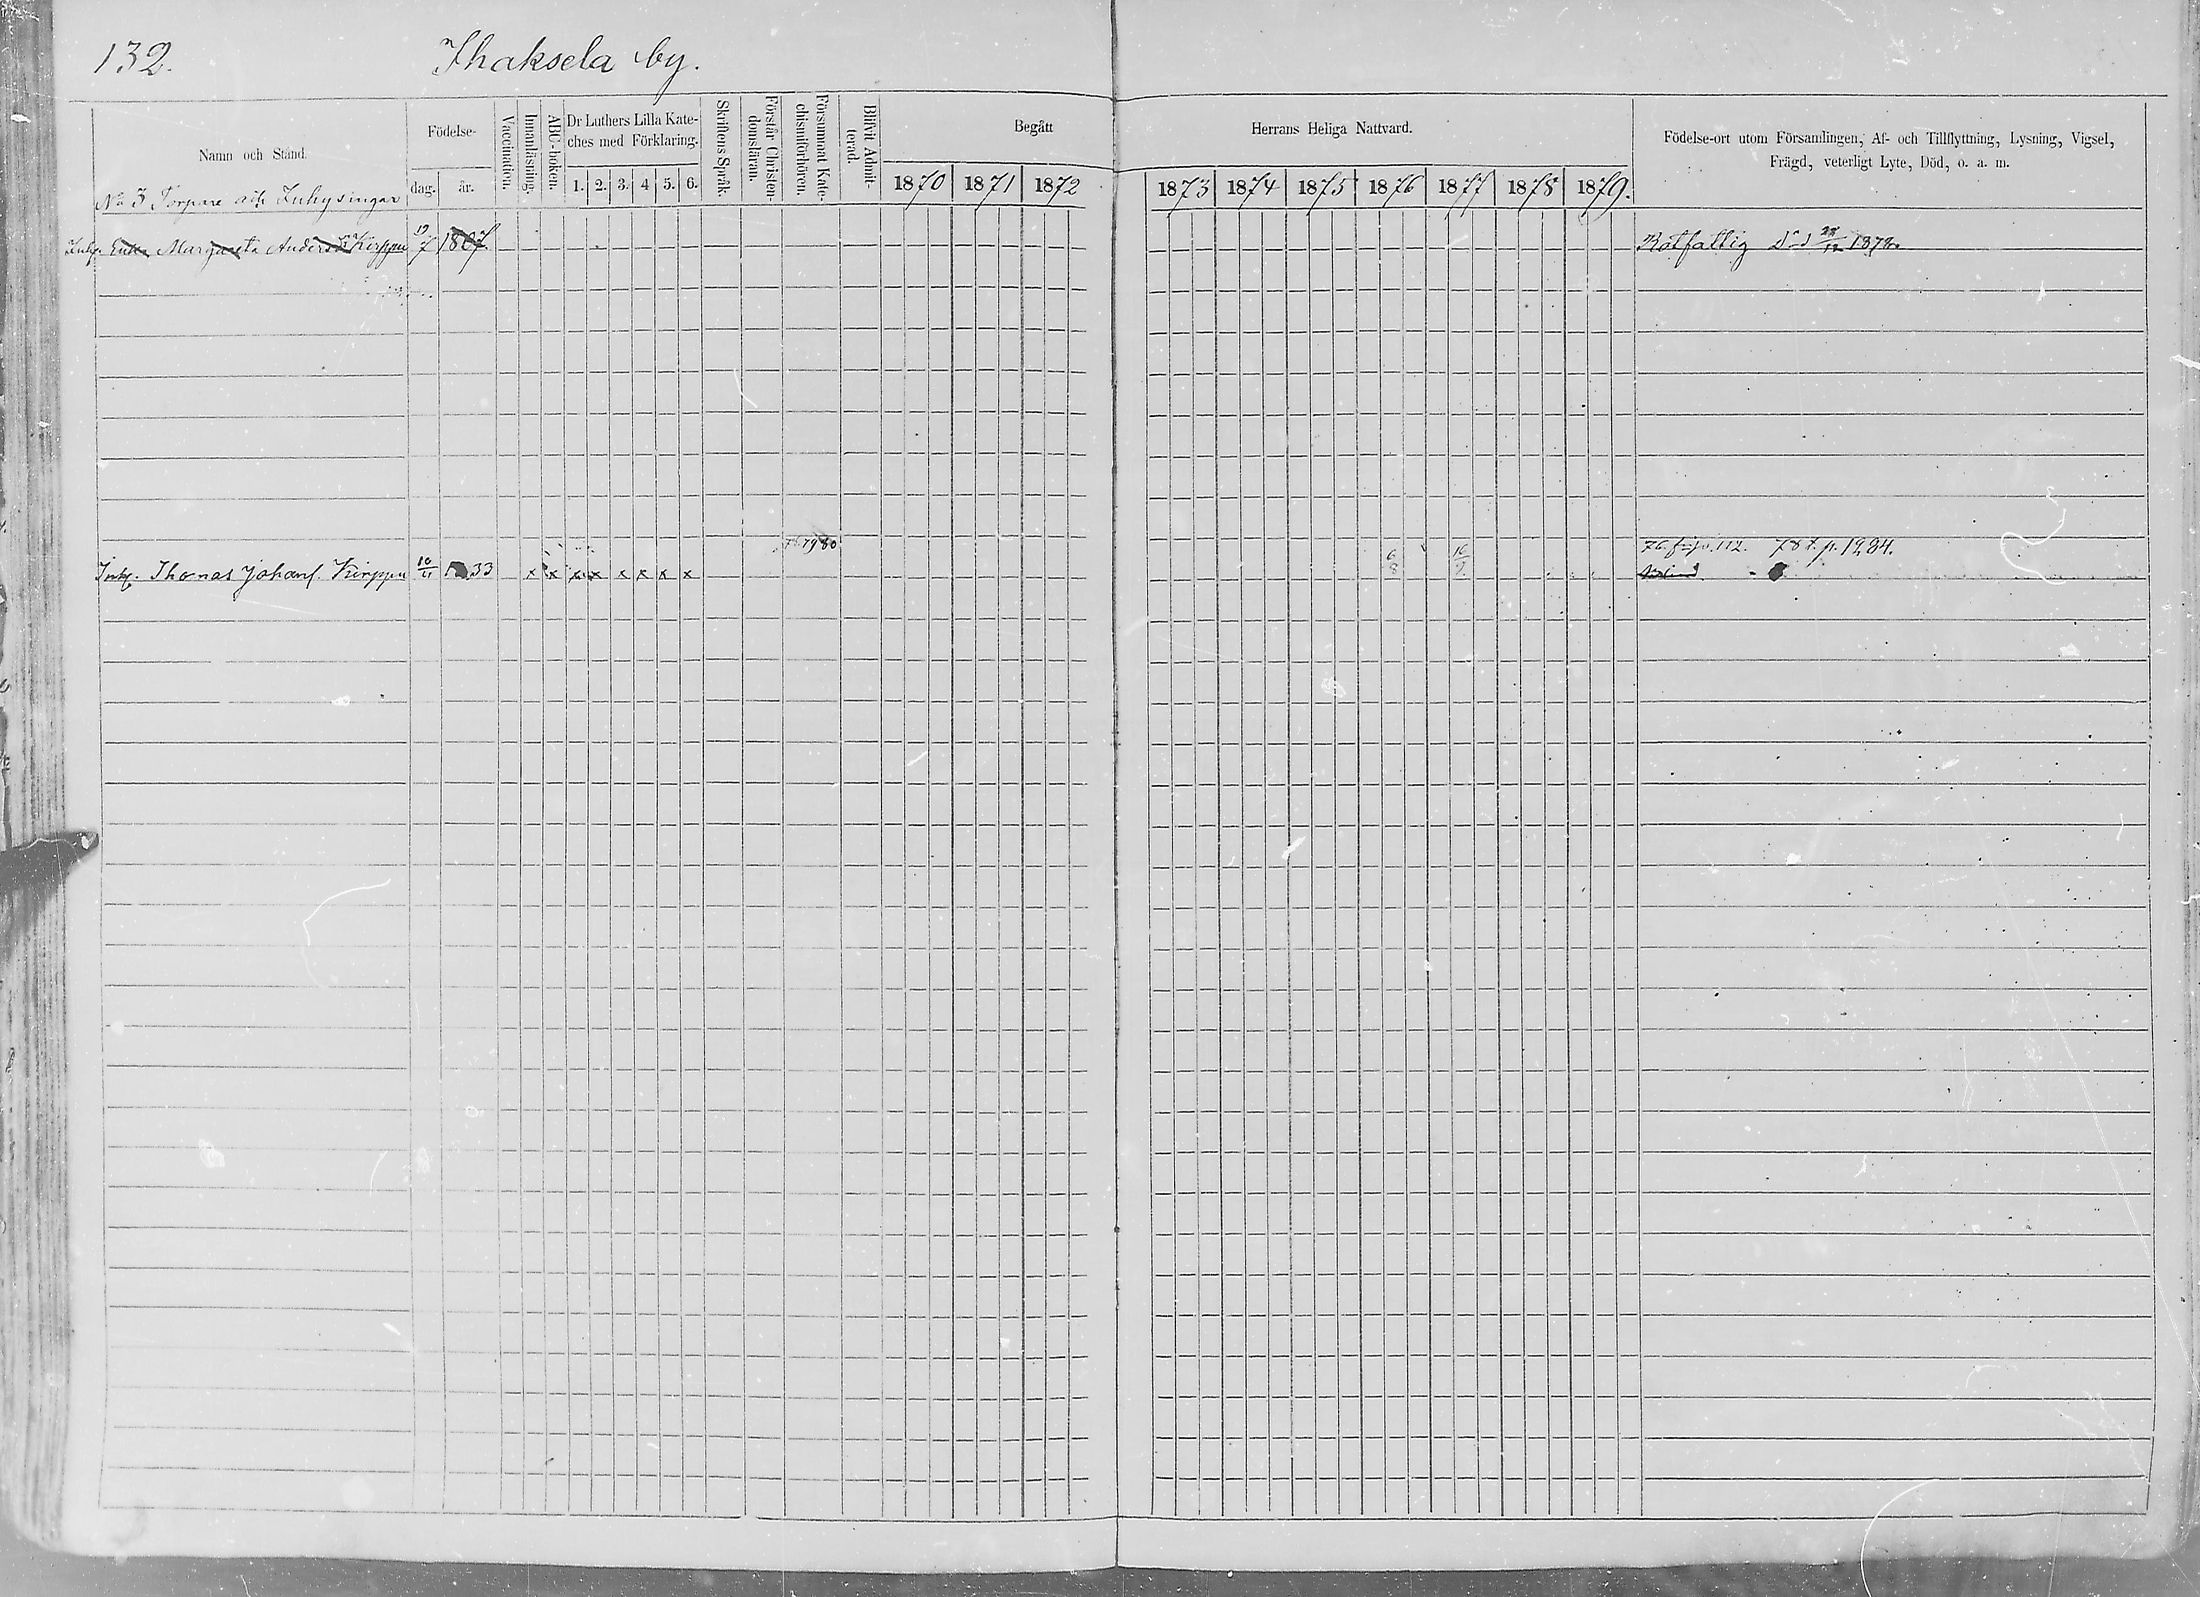 132. Ihaksela by.
Namn och Stånd.
Födelse-
dag. år.
Vaccinatien.
Innanläsning.
ABC-boken.
Dr Luthers Lilla Kate-
ches med Förklaring.
1. 2. 3. 4 5. 6.
Skriftens Språk.
Förstår Christen-
domsläran.
Försummat Kate-
chismiförhören.
Blifvit Admit-
terad.
Begått
1870 1871 1872
Herrans Heliga Nattvard.
1873 1874 1875 1876 1877 1878 1879.
Födelse-ort utom Församlingen, Af- och Tillflyttning, Lysning, Vigsel,
Frägd, veterligt Lyte, Död, o. a. m.
No 3 Torpare och Inhysingar
Inhy. Enka Margareta Andersd. Kirppu 19/7 1807. Rotfattig Död 1872.
78 79 80 6/8 16/9 112. 78 t. p. 1284.
Inhy. Thomas Johans. Kirppu 10/11 33 x x x x x x x x Blind